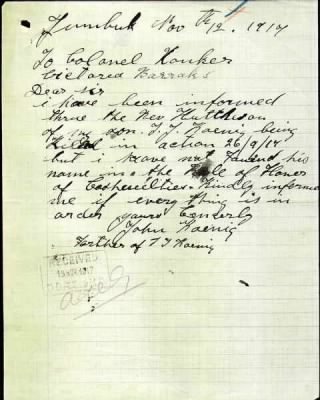 Jumbuk Nov 12th, 1917
To Colonel
Victorea Barraks
Dear sir
i have been informed
thrue the Rev Hutchison
of my son. T. J. Koenig being
Killed in action 26/9/17
but i have not found his
name in the Roll of Honor
of Kindly informe
me if every thing is in
order yours
John Koenig
Farther of T J Koenig
RECEIVED
1917